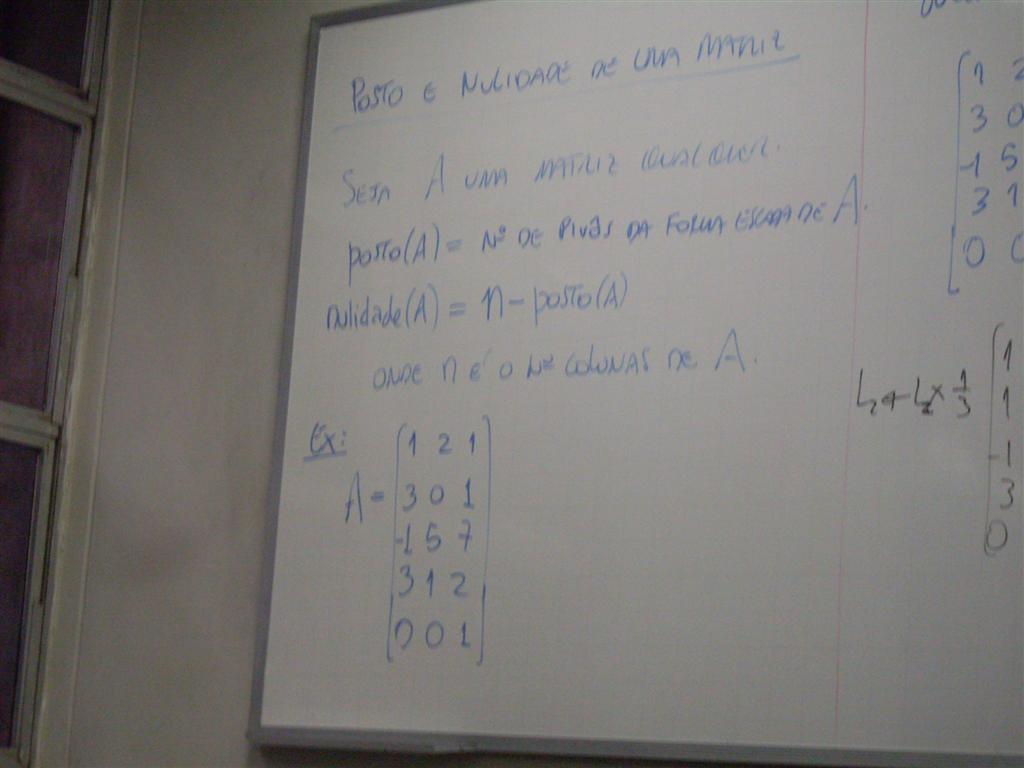 POSTO E NULIDADE DE UMA MATRIZ
SEJA A UMA MATRIZ QUALQUER.
posto(A) = Nº DE PIVÔS DA FORMA ESCADA DE A.
nulidade(A) = n - posto(A)
ONDE n É O Nº COLUNAS DE A.
Ex:
A =
1 2 1
3 0 1
-1 5 7
3 1 2
0 0 1
1 2
3 0
-1 5
3 1
0 0
L2 ← L2 × 1/3
1
1
-1
3
0